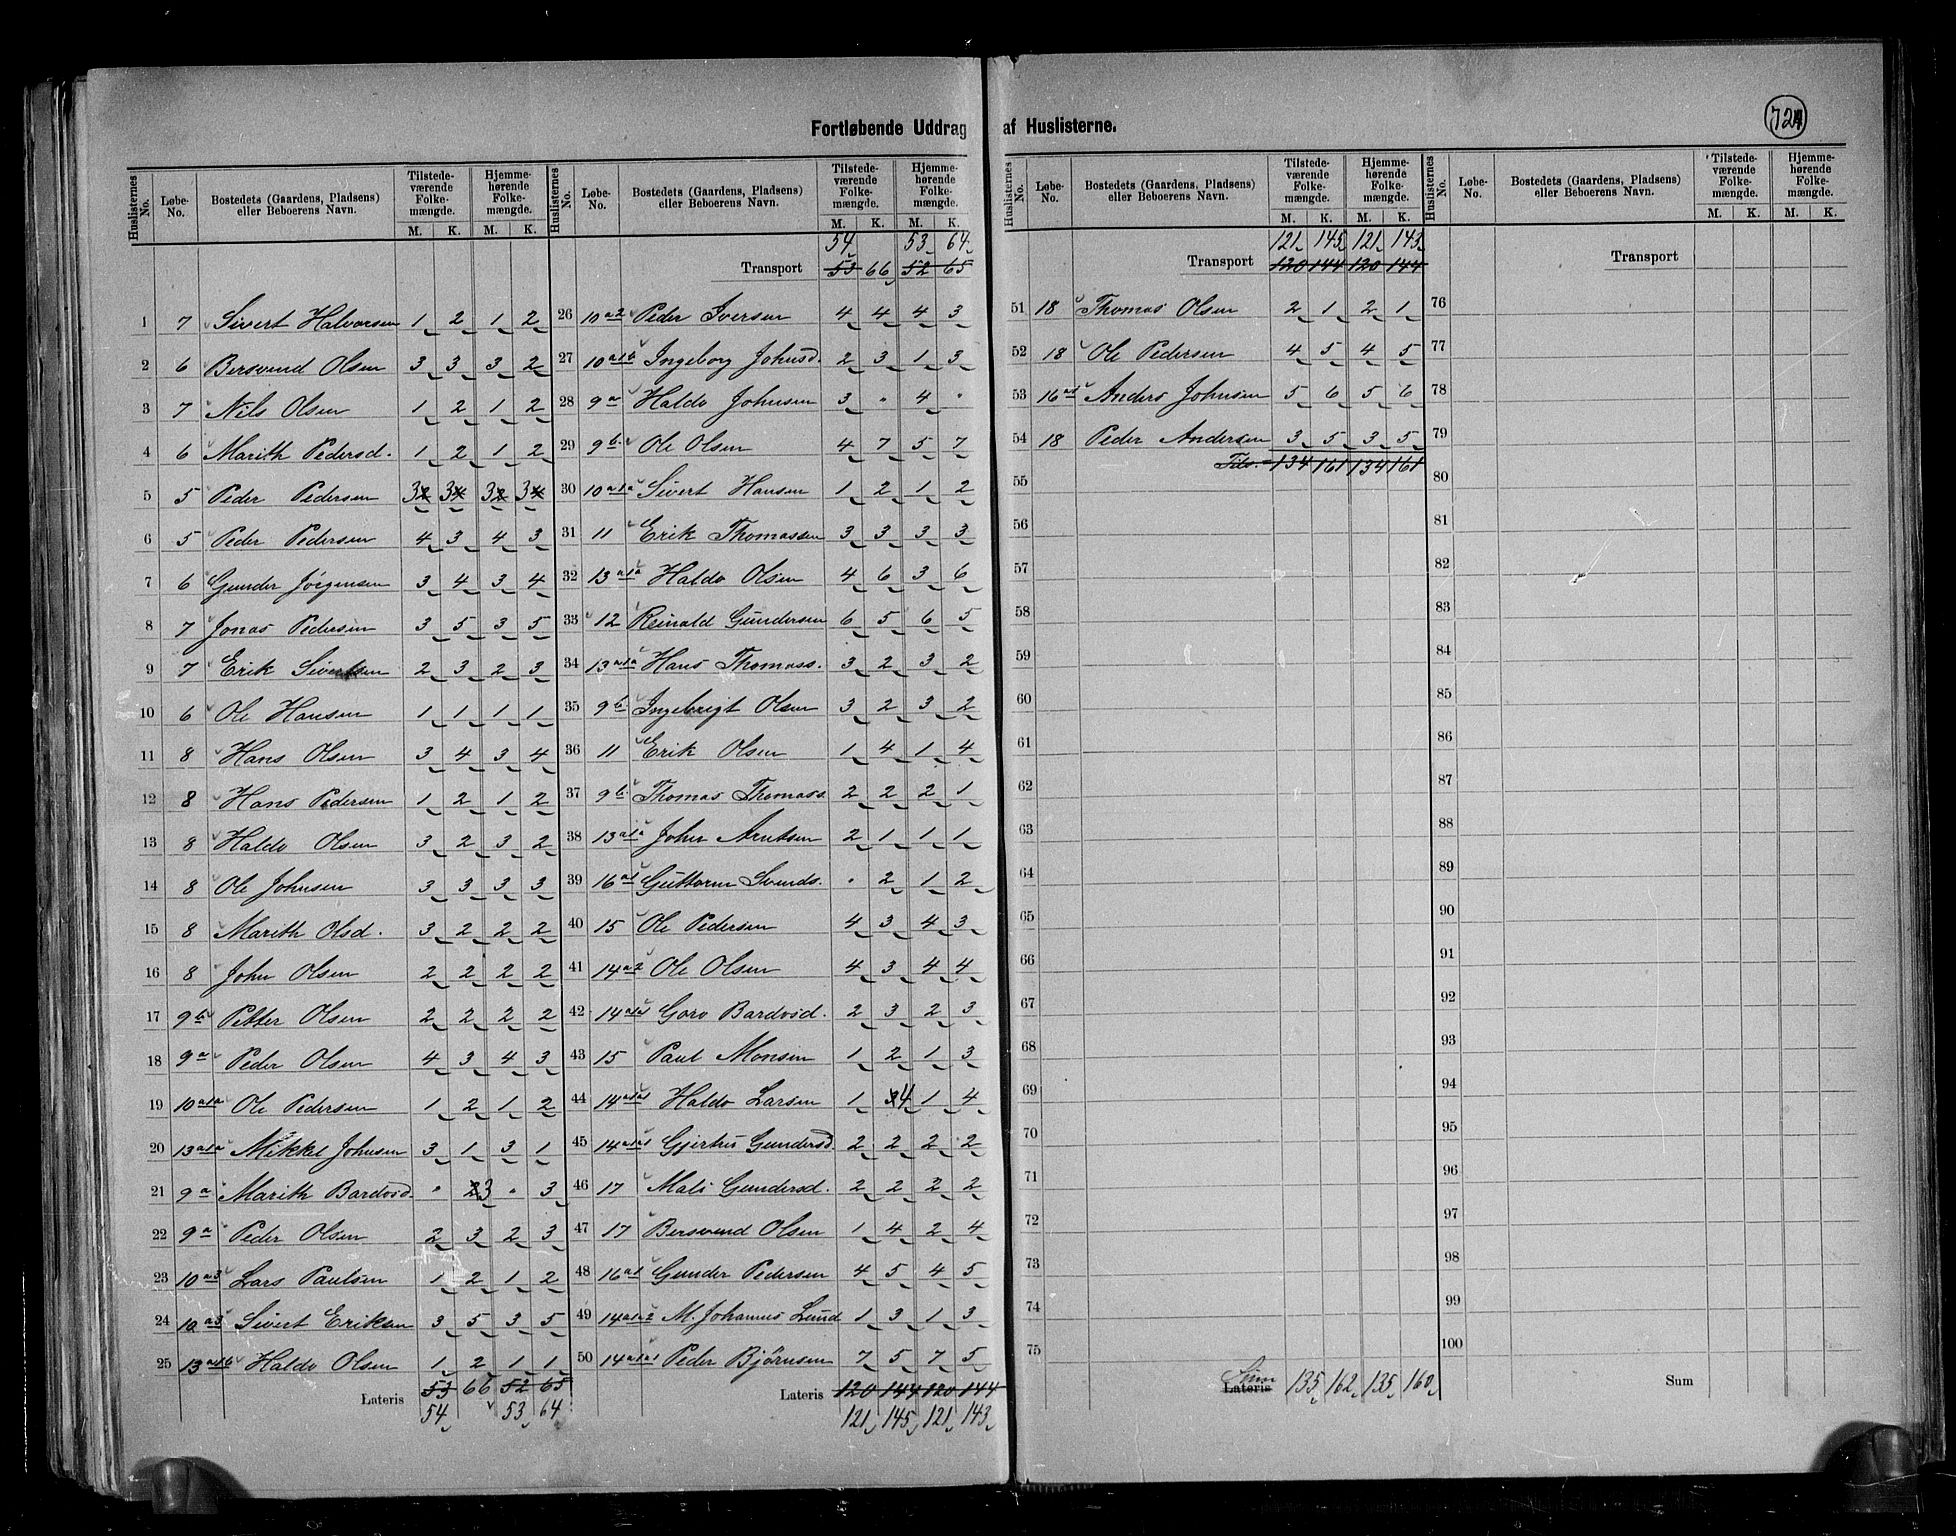 724
Fortløbende Uddrag af Huslisterne.
Huslisternes No. Løbe-No. Bostedets (Gaardens, Pladsens) eller Beboerens Navn. Tilstedeværende Folkemængde. M. K. Hjemmehørende Folkemængde. M. K.
1 7 Sivert Halvorsen 1 2 1 2
2 6 Bersvend Olsen 3 3 3 2
3 7 Nils Olsen 1 2 1 2
4 6 Marith Pedersd. 1 2 1 2
5 5 Peder Pedersen 3 3 3 3
6 5 Peder Pedersen 4 3 4 3
7 6 Gunder Jörgensen 3 4 3 4
8 7 Jonas Pedersen 3 5 3 5
9 7 Erik Sivertsen 2 3 2 3
10 6 Ole Hansen 1 1 1 1
11 8 Hans Olsen 3 4 3 4
12 8 Hans Pedersen 1 2 1 2
13 8 Haldo Olsen 3 2 3 2
14 8 Ole Johnsen 3 3 3 3
15 8 Marith Olsd. 3 2 2 2
16 8 John Olsen 2 2 2 2
17 9b Petter Olsen 2 2 2 2
18 9a Peder Olsen 4 3 4 3
19 10a1a Ole Pedersen 1 2 1 2
20 13a1a Mikkel Johnsen 3 1 3 1
21 9a Marith Bardosd. " 3 " 3
22 9a Peder Olsen 2 3 2 3
23 10a3 Lars Paulsen 1 2 1 2
24 10a3 Sivert Eriksen 3 5 3 5
25 13a1b Haldo Olsen 1 2 1 1
Lateris 53 66 52 65
54 53 64
Huslisternes No. Løbe-No. Bostedets (Gaardens, Pladsens) eller Beboerens Navn. Tilstedeværende Folkemængde. M. K. Hjemmehørende Folkemængde. M. K.
54 53 64
Transport 53 66 52 65
26 10a2 Peder Iversen 4 4 4 3
27 10a1b Ingeborg Johnsd. 2 3 1 3
28 9a Haldo Johnsen 3 " 4 "
29 9b Ole Olsen 4 7 5 7
30 10a1a Sivert Hansen 1 2 1 2
31 11 Erik Thomassen 3 3 3 3
32 13a1a Haldo Olsen 4 6 3 6
33 12 Reinald Gundersen 6 5 6 5
34 13a1a Hans Thomass. 3 2 3 2
35 9b Ingebrigt Olsen 3 2 3 2
36 11 Erik Olsen 1 4 1 4
37 9b Thomas Thomass. 2 2 2 1
38 13a1a John Arntsen 2 1 1 1
39 16a1 Guttorm Svends. " 2 1 2
40 15 Ole Pedersen 4 3 4 3
41 14a2 Ole Olsen 4 3 4 4
42 14a1a1 Goro Bardosd. 2 3 2 3
43 15 Paul Monsen 1 2 1 3
44 14a1a1 Haldo Larsen 1 4 1 4
45 14a1a1 Gjertru Gundersd. 2 2 2 2
46 17 Mali Gundersd. 2 2 2 2
47 17 Bersvend Olsen 1 4 2 4
48 16a1 Gunder Pedersen 4 5 4 5
49 14a1a2 M. Johannes Lund 1 3 1 3
50 14a1a1 Peder Bjørnsen 7 5 7 5
Lateris 120 144 120 144
121 145 121 143
Huslisternes No. Løbe-No. Bostedets (Gaardens, Pladsens) eller Beboerens Navn. Tilstedeværende Folkemængde. M. K. Hjemmehørende Folkemængde. M. K.
121 145 121 143
Transport 120 144 120 144
51 18 Thomas Olsen 2 1 2 1
52 18 Ole Pedersen 4 5 4 5
53 16a1 Anders Johnsen 5 6 5 6
54 18 Peder Andersen 3 5 3 5
134 161 134 161
55
56
57
58
59
60
61
62
63
64
65
66
67
68
69
70
71
72
73
74
75
Sum
Lateris 135 162 135 160
Huslisternes No. Løbe-No. Bostedets (Gaardens, Pladsens) eller Beboerens Navn. Tilstedeværende Folkemængde. M. K. Hjemmehørende Folkemængde. M. K.
Transport
76
77
78
79
80
81
82
83
84
85
86
87
88
89
90
91
92
93
94
95
96
97
98
99
100
Sum